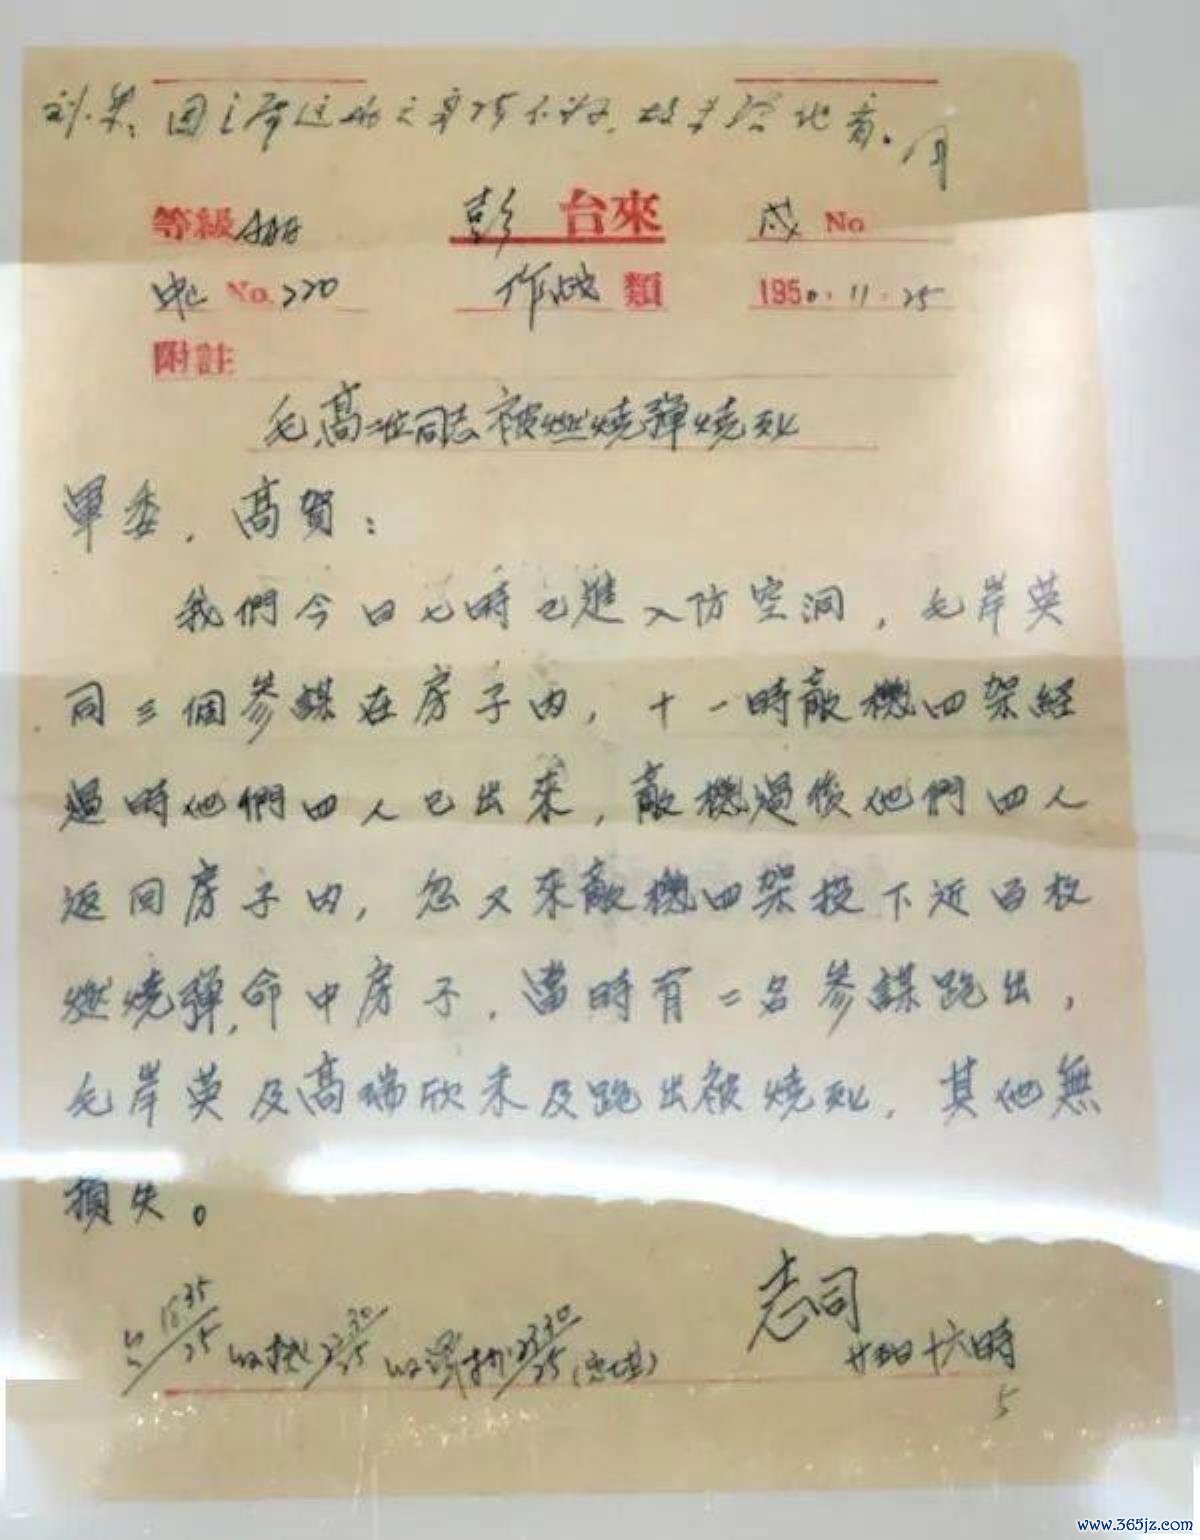 刘
等級 AAAA 彭 台來 戌 No
No. 220 作战 類 1950.11.25
附註
毛、高二位同志被燃燒彈燒死
軍委，高賀：
我們今日七時已進入防空洞，毛岸英
同三個參謀在房子内，十一時敵機四架經
過時他們四人已出來，敵機過後他們四人
返回房子内，忽又來敵機四架投下近百枚
燃燒彈，命中房子，當時有二名參謀跑出，
毛岸英及高瑞欣未及跑出被燒死，其他無
損失。
志司
十六時
www.365jz.com